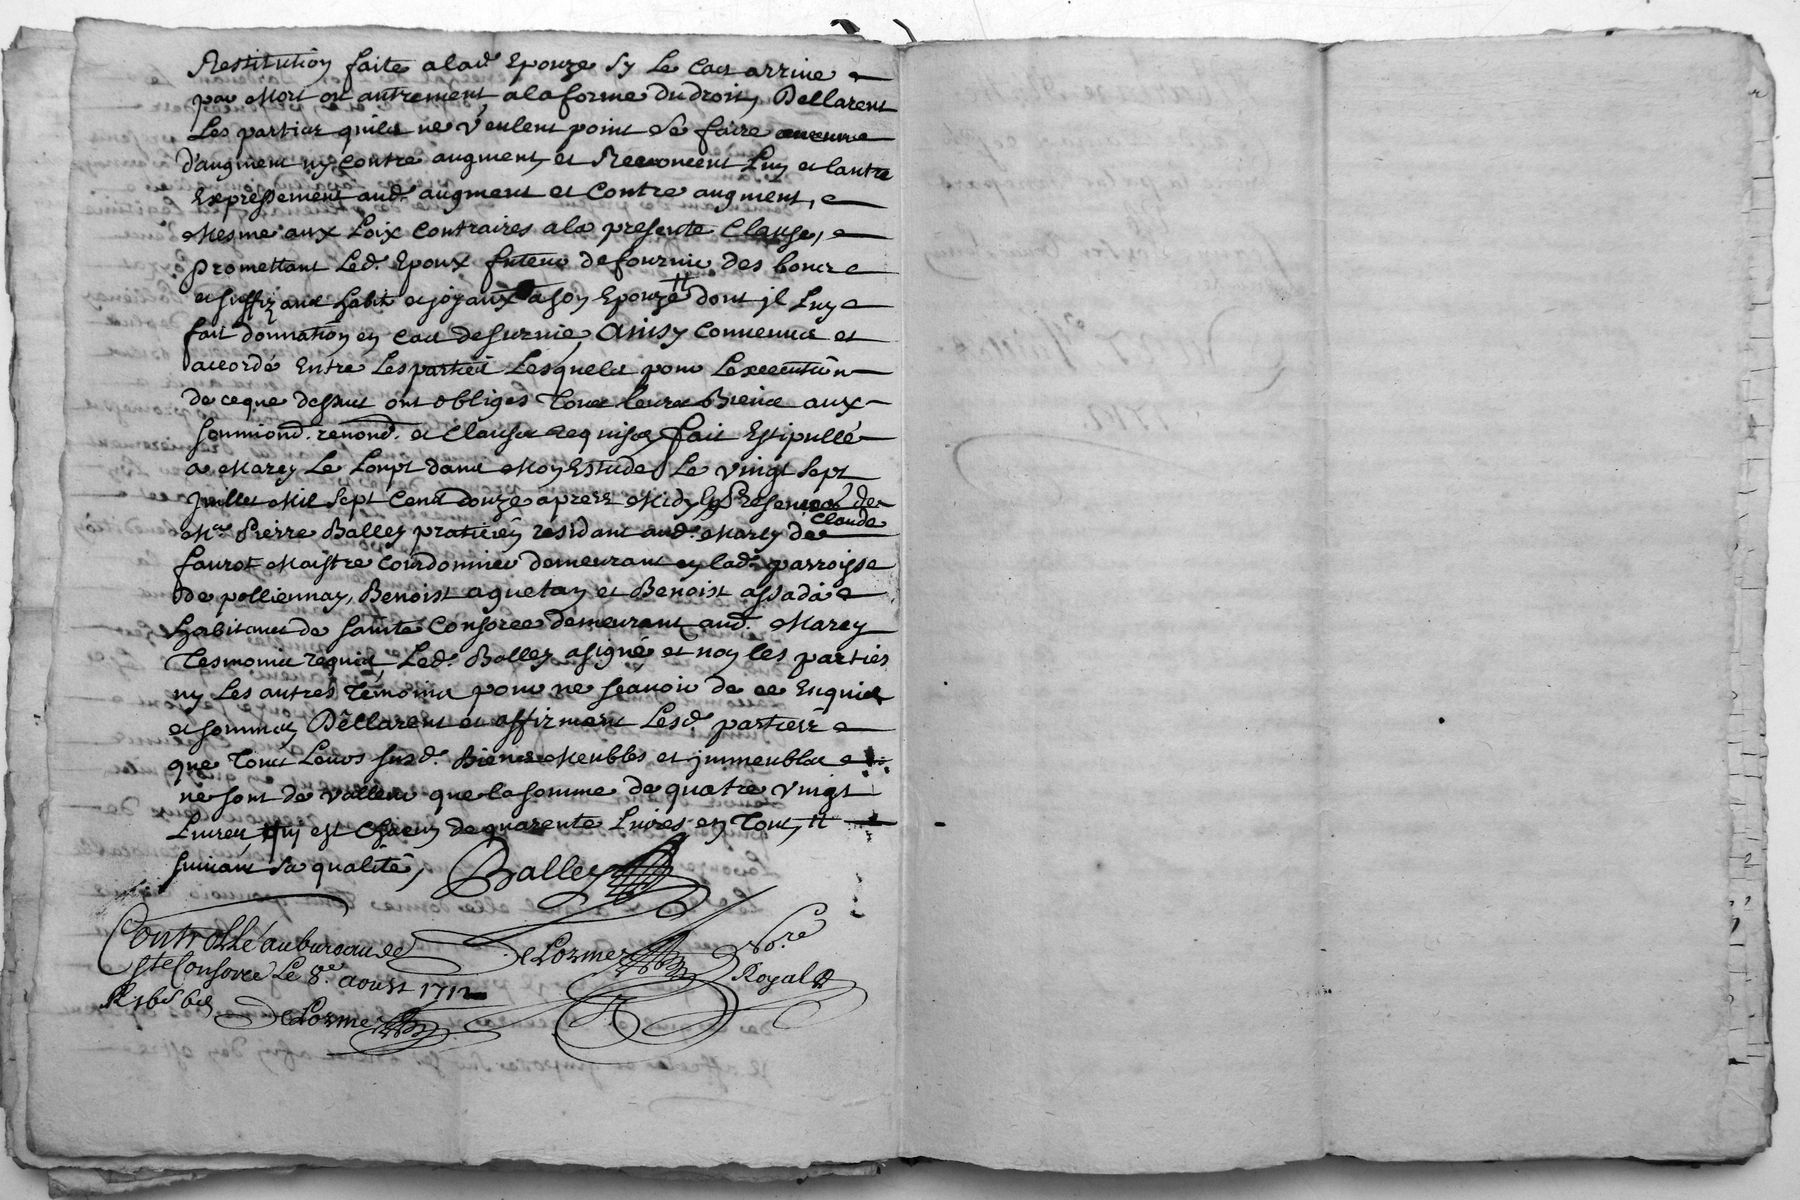 Restitution faite alad. Epouze sy Le cas arrive
par Mort ou autrement, ala forme du droit, Dellarent
Les parties quils ne veulent point se faire aucune
d'augment ny Contre augment, et Renoncent Luy et lautre
Expressement aud. augment et Contre augment,
Mesme aux Loix Contraires ala presente Clause,
promettant Led. Epoux futeur de fournir des bons
et suffizans habits et joyaux a son Epouze dont jl Luy
fait donnation en cas de survie, Ainsy Convenus et
accordé Entre Les parties Lesquels pour Lexecution
de ceque dessus ont obliges Tous leurs Biens aux
soumiond. renond. et Clauses requises fait Estipullé
a Marcy Le Loupt dans Mon Estude Le vingt sept
juillet Mil sept Cens douze apres Midy En Presences de
Me. Pierre Balley pratitien residant aud. Marcy de Claude
faurot Maistre Courdonnier demeurant en lad. parroisse
de polliennay, Benoist aguetan et Benoist assada
habitans de sainte Consorce demeurant aud. Marcy
Tesmoins requis Led. Balley a signé et non les parties
ny Les autres Temoins pour ne scavoir de ce Enquis
et sommes Dellarent et affirment Lesd. parties
que Tous Leurs susd. Biens Meubles et jmmeubles
ne sont de valleur que la somme de quatre vingt
Livres, qui est chacun de quarente Livres en Tout,
suivant sa qualité, Balley
Controllé au bureau de
Ste Consorce Le 8e. aoust 1712
DeLorme Nore
Royal
DeLorme